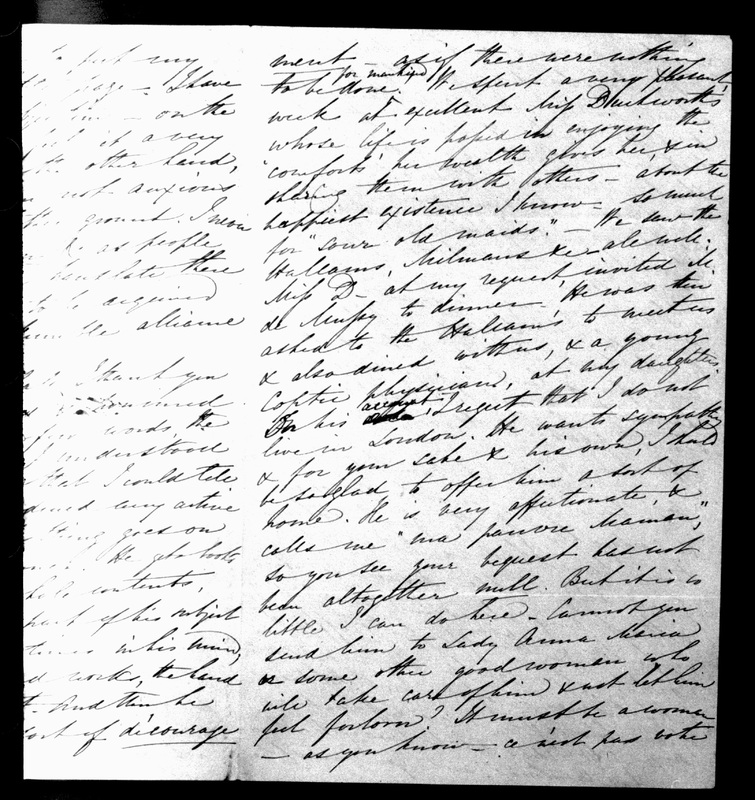 to put my
page — I have
him — on the
it a very
other hand,
not anxious
ground. I never
as people
there
to be acquired
humble alliance
I thank you
words the
understood
that I could tell
any active
thing goes on
He gets books
contents,
part of his subject
times in his mind,
works, the hand
And then he
sort of décourage
ment — as if there were nothing
to be done for mankind. We spent a very pleasant
week at excellent Miss Duckworth's
whose life is passed in enjoying the
"comforts" her wealth gives her, & in
sharing them with others — about the
happiest existence I know — so much
for "sour old maids." — We saw the
Hallams, Milmans &c — all well.
Miss D — at my request, invited M.
de Mussy to dinner. He was then
asked to the Hallams, to meet us
& also dined with us, & a young
Coptic physician, at my daughter's.
On his account, I regret that I do not
live in London. He wants sympathy
& for your sake & his own, I should
be so glad to offer him a sort of
home. He is very affectionate, &
calls me "ma pauvre Maman",
so you see your bequest has not
been altogether null. But it is
little I can do here — Cannot you
send him to Lady Anna Maria
or some other good woman who
will take care of him & not let him
feel forlorn? It must be a woman
— as you know — ce n'est pas votre